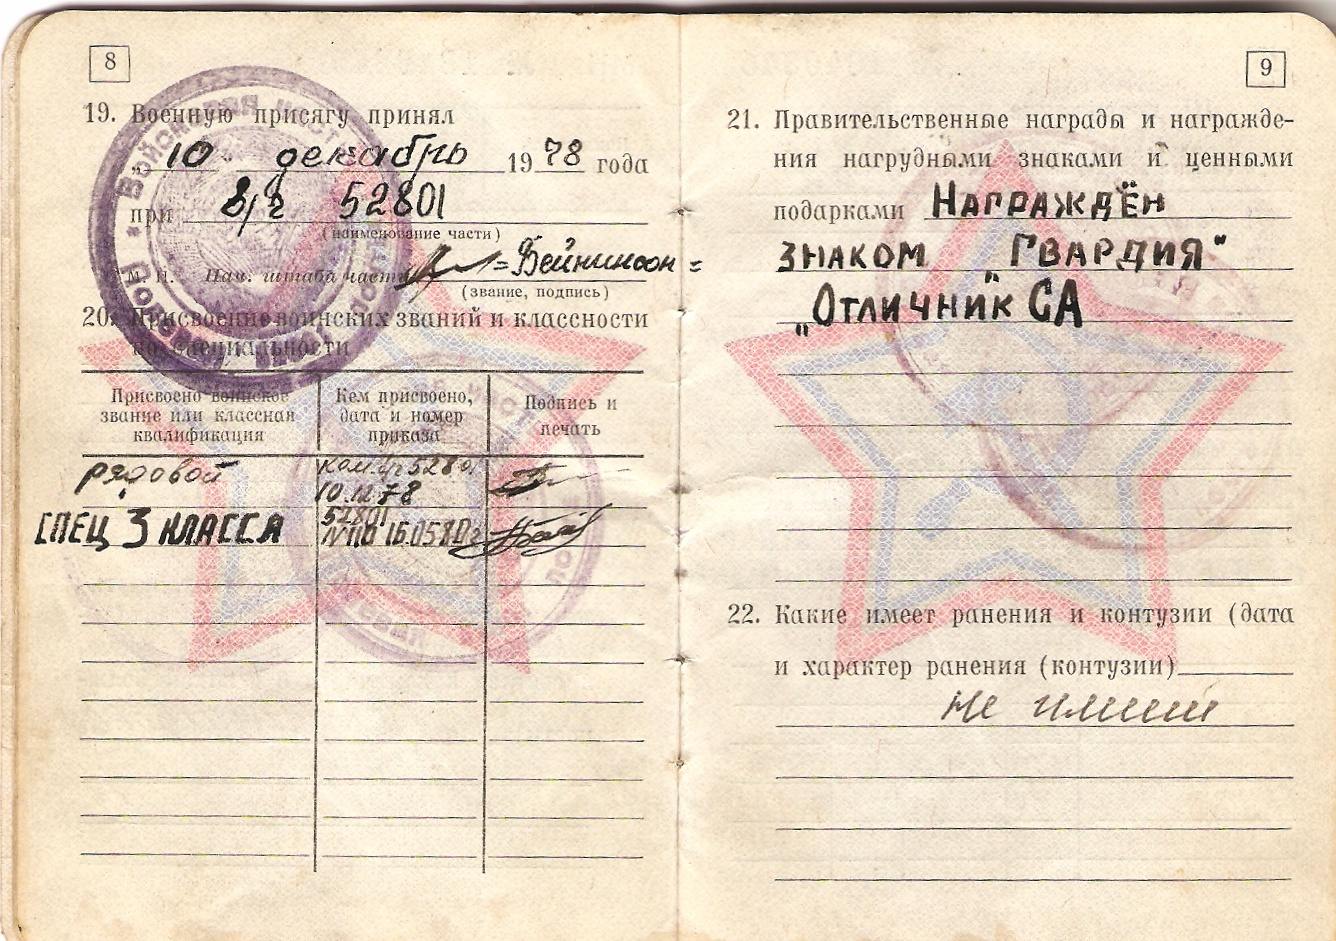 8
19. Военную присягу принял
10 декабрь 1978 года
при в/ч 52801
(наименование части)
М. П. Нач. штаба части
(звание, подпись)
20. Присвоение воинских званий и классности
по специальности
Присвоено воинское звание или классная квалификация
Кем присвоено, дата и номер приказа
Подпись и печать
рядовой
ком. в/ч 52801
10.12.78
СПЕЦ 3 КЛАССА
52801
N110 16.05.80г
9
21. Правительственные награды и награжде-
ния нагрудными знаками и ценными
подарками НАГРАЖДЁН
ЗНАКОМ „ГВАРДИЯ"
„ОТЛИЧНИК СА
22. Какие имеет ранения и контузии (дата
и характер ранения (контузии)
не имеет